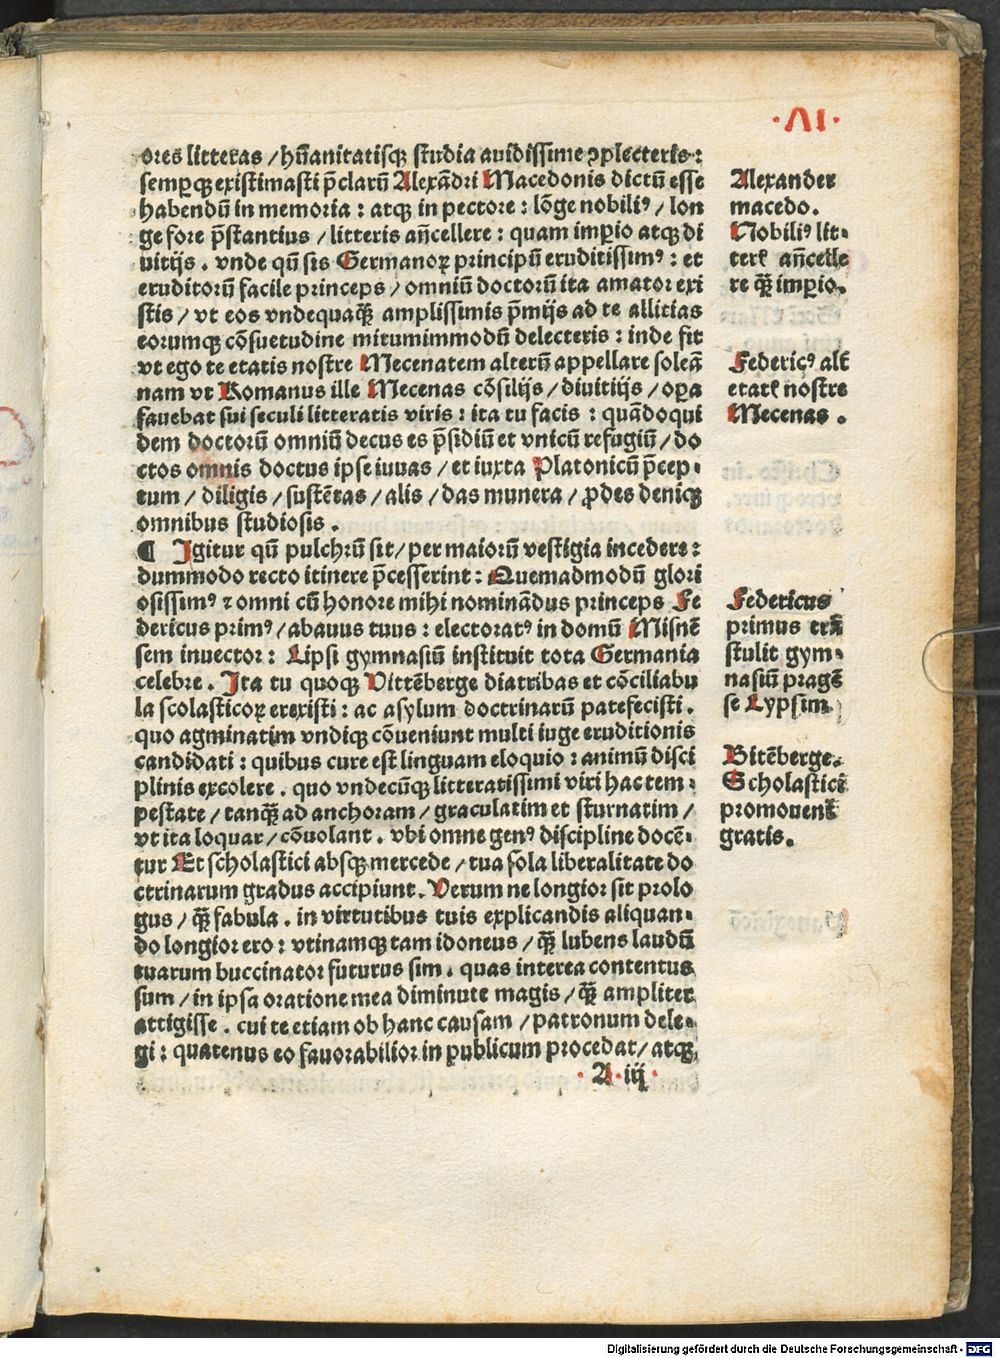 ·VI·
ores litteras / hūanitatisqꝫ studia auidissime ꝯplecteris:
semꝑqꝫ existimasti p̄clarū Alexādri Macedonis dictū esse
habendū in memoria : atqꝫ in pectore : lōge nobiliꝰ / lon
ge fore p̄stantius / litteris añcellere : quam imꝑio atqꝫ di
uitijs . vnde qū sis Germanoꝝ principū eruditissimꝰ : et
eruditorū facile princeps / omniū doctorū ita amator exi
stis / vt eos vndequaqꝫ amplissimis p̄mijs ad te allicias
eorumqꝫ cōsuetudine mirumimmodū delecteris : inde fit
vt ego te etatis nostre Mecenatem alterū appellare soleā
nam vt Romanus ille Mecenas cōsilijs / diuitijs / oꝑa
fauebat sui seculi litteratis viris : ita tu facis : quādoqui
dem doctorū omniū decus es p̄sidiū et vnicū refugiū / do
ctos omnis doctus ipse iuuas / et iuxta Platonicū p̄cep⸗
tum / diligis / sustētas / alis / das munera / ꝓdes deniqꝫ
omnibus studiosis .
¶ Igitur qū pulchrū sit / per maiorū vestigia incedere :
dummodo recto itinere p̄cesserint : Quemadmodū glori
osissimꝰ ⁊ omni cū honore mihi nominādus princeps Fe
dericus primꝰ / abauus tuus : electoratꝰ in domū Misnē
sem inuector : Lipsi gymnasiū instituit tota Germania
celebre . Ita tu quoqꝫ Vittēberge diatribas et cōciliabu
la scolasticoꝝ erexisti : ac asylum doctrinarū patefecisti .
quo agminatim vndiqꝫ cōueniunt multi iuge eruditionis
candidati : quibus cure est linguam eloquio : animū disci
plinis excolere . quo vndecūqꝫ litteratissimi viri hac tem⸗
pestate / tanqꝫ̄ ad anchoram / graculatim et sturnatim /
vt ita loquar / cōuolant . vbi omne genꝰ discipline docē⸗
tur Et scholastici absqꝫ mercede / tua sola liberalitate do
ctrinarum gradus accipiunt . Verum ne longior sit prolo
gus / qꝫ̄ fabula . in virtutibus tuis explicandis aliquan⸗
do longior ero : vtinamqꝫ tam idoneus / qꝫ̄ lubens laudū
tuarum buccinator futurus sim . quas interea contentus
sum / in ipsa oratione mea diminute magis / qꝫ̄ ampliter
attigisse . cui te etiam ob hanc causam / patronum dele⸗
gi : quatenus eo fauorabilior in publicum procedat / atqꝫ
·A·iij·
Alexander
macedo.
Nobiliꝰ lit⸗
terꝭ añcelle
re qꝫ̄ imꝑio.
Federicꝰ alt̄
etatꝭ nostre
Mecenas .
Federicus
primus trā
stulit gym⸗
nasiū pragē
se Lypsim.
Bitēberge.
Scholastici
promouent̄
gratis.
Digitalisierung gefördert durch die Deutsche Forschungsgemeinschaft - DFG